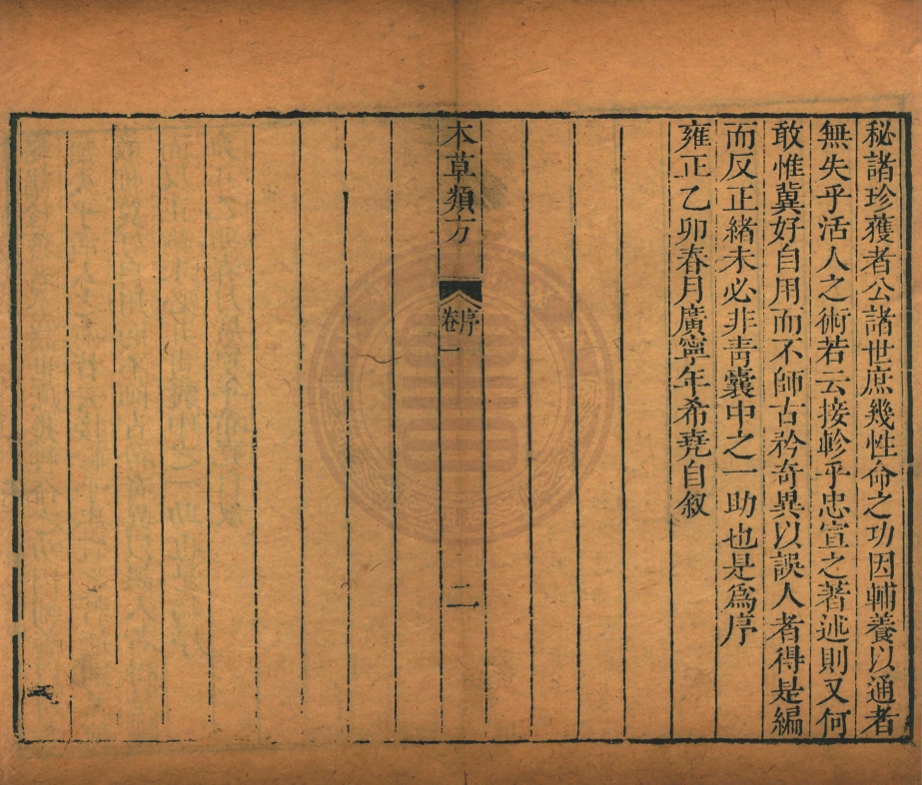 秘諸珍獲者公諸世庶幾性命之功因輔養以通者
無失乎活人之術若云接軫乎忠宣之著述則又何
敢惟冀好自用而不師古矜奇異以誤人者得是編
而反正緒未必非青囊中之一助也是爲序
雍正乙卯春月廣寧年希堯自叙
本草類方
序
卷一
二